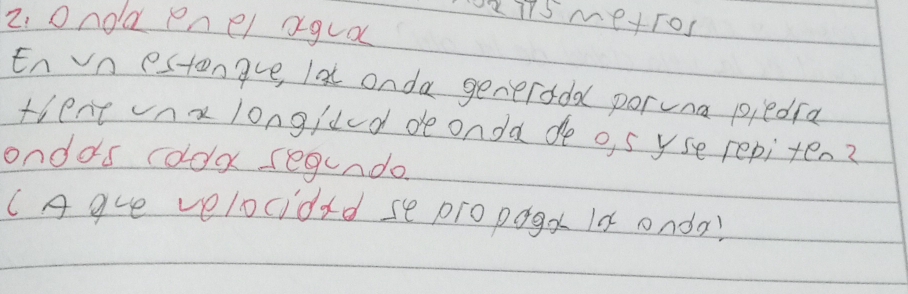 175 metros
2. Onda en el agua
En un estanque, la onda generada por una piedra
tiene una longitud de onda de 0,5 y se repiten 2
ondas cada segundo.
¿A que velocidad se propaga la onda?